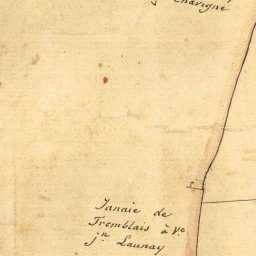 Chavigné
Janaie de
Tremblais à Ve
jn Launay